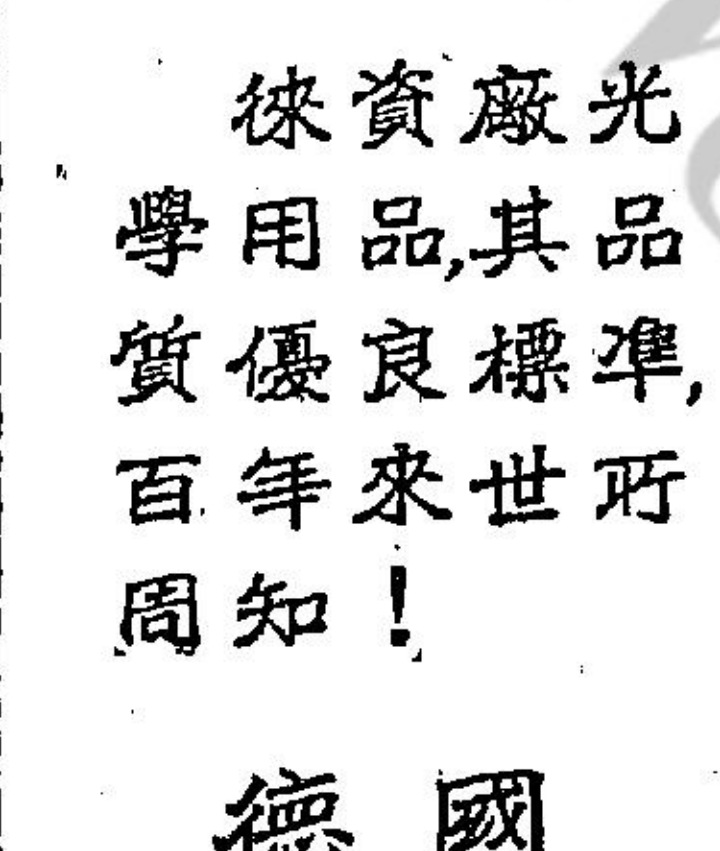 徠資廠光
學用品,其品
質優良標準,
百年來世所
周知!
德國